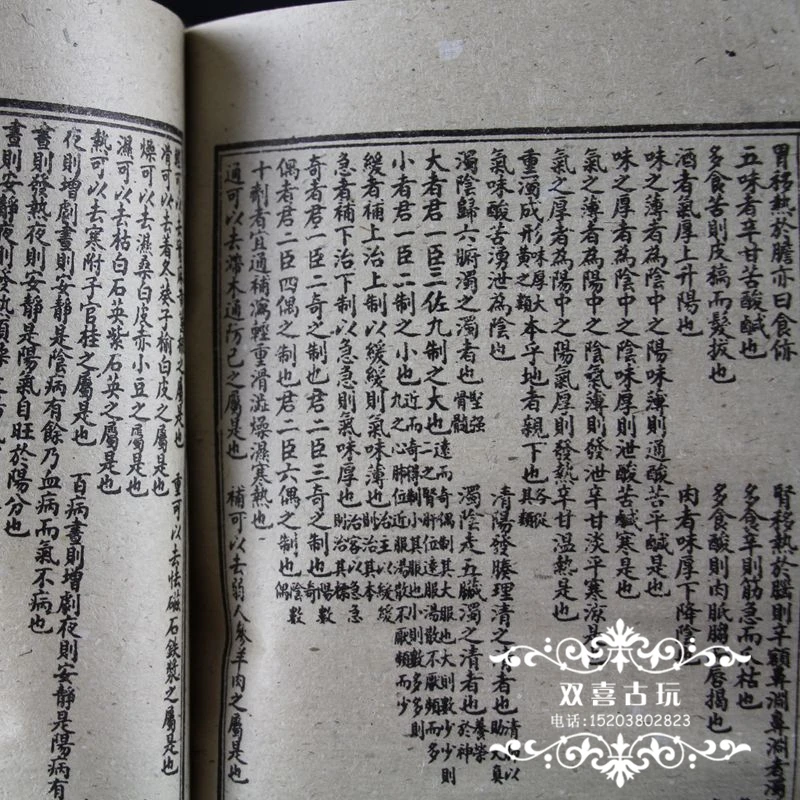 胃移熱於膽亦曰食㑊 腎移熱於腦則辛頞鼻淵鼻淵者濁
五味者辛甘苦酸鹹也 多食辛則筋急而爪枯也
多食苦則皮槁而髮拔也 多食酸則肉胝䐢而唇揭也
酒者氣厚上升陽也 肉者味厚下降陰也
味之薄者為陰中之陽味薄則通酸苦平鹹是也
味之厚者為陰中之陰味厚則泄酸苦鹹寒是也
氣之薄者為陽中之陰氣薄則發泄辛甘淡平寒涼是也
氣之厚者為陽中之陽氣厚則發熱辛甘溫熱是也
重濁成形味厚大黃之類本乎地者親下也各從其類
氣味酸苦湧泄為陰也 清陽發腠理清之清者也清肺以助天真
濁陰歸六腑濁之濁者也堅強骨髓 濁陰走五臟濁之清者也榮養於神
大者君一臣三佐九制之大也遠而奇偶制其大服也大則數少少則二之腎肝位遠服湯散不厭頻而多
小者君一臣二制之小也近而奇偶制小其服也小則數多多則九之心肺位近服湯散不厭頻而少
緩者補上治上制以緩緩則氣味薄也治主以緩緩則治其本
急者補下治下制以急急則氣味厚也治客以急急則治其標
奇者君一臣二奇之制也君二臣三奇之制也陽數奇
偶者君二臣四偶之制也君二臣六偶之制也陰數偶
十劑者宜通補瀉輕重滑澁燥濕寒熱也
通可以去滯木通防己之屬是也 補可以去弱人參羊肉之屬是也
重可以去怯磁石鉄漿之屬是也
滑可以去着冬葵子榆白皮之屬是也
燥可以去濕桑白皮赤小豆之屬是也
濕可以去枯白石英紫石英之屬是也
熱可以去寒附子官桂之屬是也 百病晝則增劇夜則安靜是陽病有
夜則增劇晝則安靜是陰病有餘乃血病而氣不病也
晝則發熱夜則安靜是陽氣自旺於陽分也
晝則安靜夜則發熱煩燥
双喜古玩
电话:15203802823